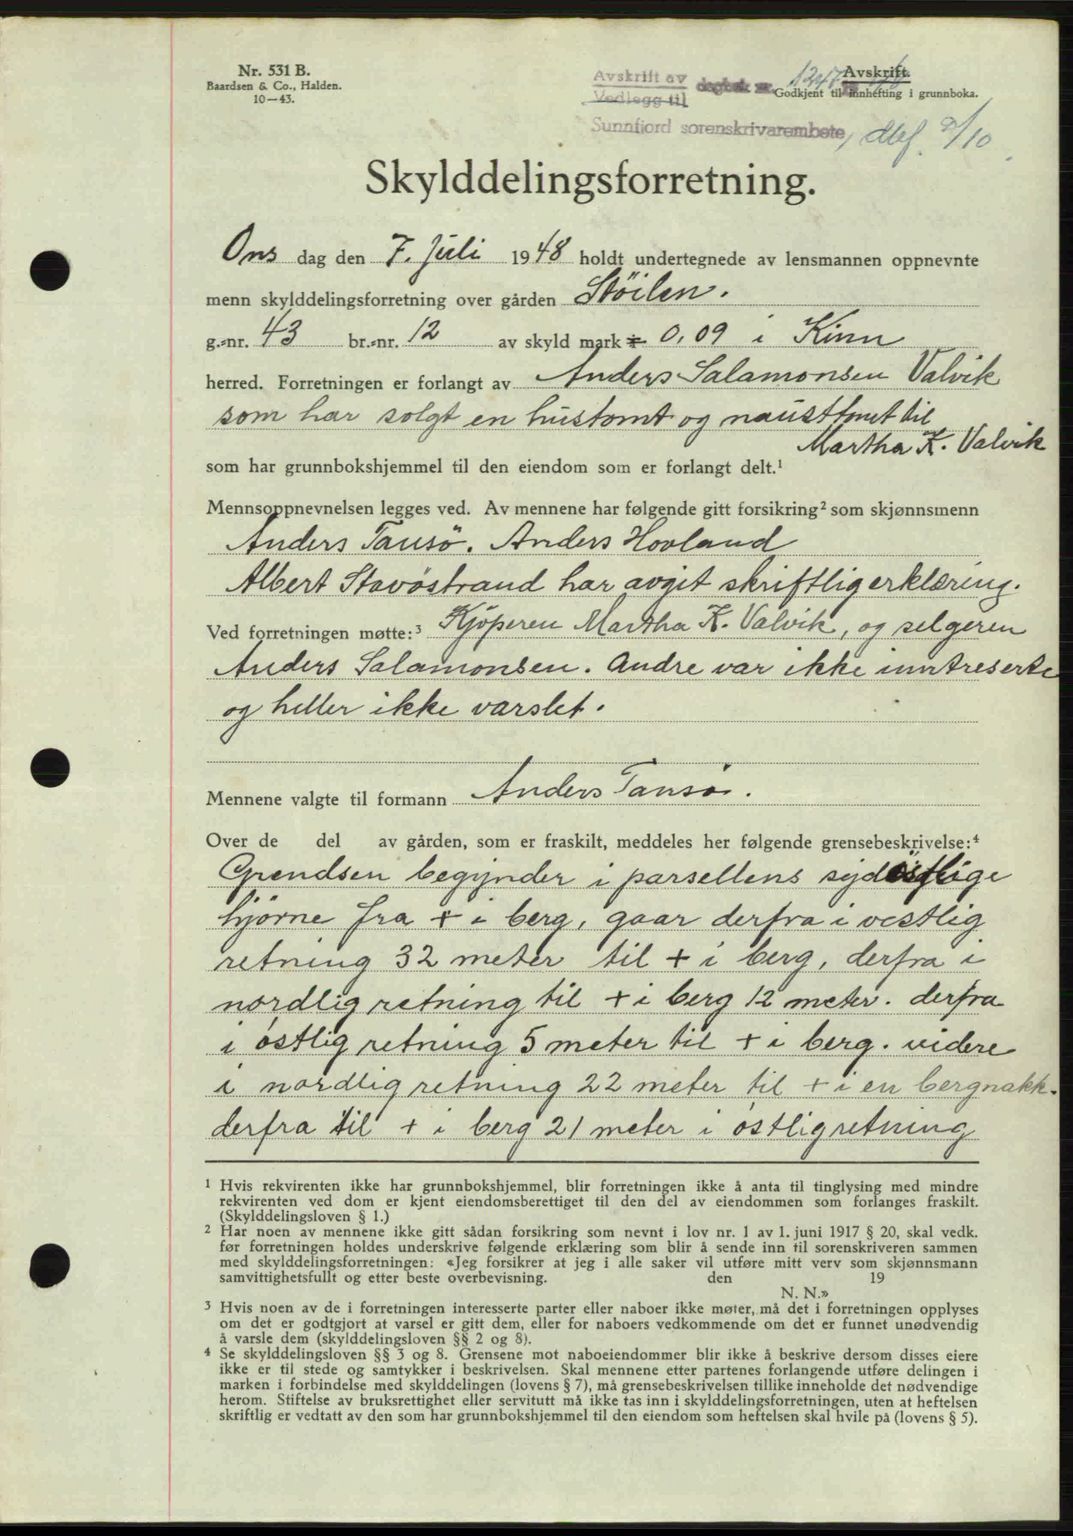 Nr. 531 B.
Baardsen & Co., Halden.
10—43.
Avskrift av
Vedlegg til dagbok nr. 1247
Sunnfjord sorenskrivarembete,
Avskrift.
Godkjent til innhefting i grunnboka.
Skylddelingsforretning.
Ons dag den 7. Juli 1948 holdt undertegnede av lensmannen oppnevnte
menn skylddelingsforretning over gården Stöilen.
g.-nr. 43 br.-nr. 12 av skyld mark 0,09 i Kinn
herred. Forretningen er forlangt av Anders Salamonsen Valvik
som har solgt en hustomt og nausttomt til
Martha K. Valvik
som har grunnbokshjemmel til den eiendom som er forlangt delt.¹
Mennsoppnevnelsen legges ved. Av mennene har følgende gitt forsikring² som skjønnsmenn
Anders Tansö. Anders Hovland
Albert Stavöstrand har avgit skriftlig erklæring.
Ved forretningen møtte:³ Kjöperen Martha K. Valvik, og selgeren
Anders Salamonsen. Andre var ikke inntreserte
og heller ikke varslet.
Mennene valgte til formann Anders Tansö.
Over de del av gården, som er fraskilt, meddeles her følgende grensebeskrivelse:⁴
Grendsen begynder i parsellens sydöstlige
hjørne fra + i berg, gaar derfra i vestlig
retning 32 meter til + i berg, derfra i
nordlig retning til + i berg 12 meter. derfra
i østlig retning 5 meter til + i berg. videre
i nordlig retning 22 meter til + i en bergnakk.
derfra til + i berg 21 meter i østlig retning
¹ Hvis rekvirenten ikke har grunnbokshjemmel, blir forretningen ikke å anta til tinglysing med mindre
rekvirenten ved dom er kjent eiendomsberettiget til den del av eiendommen som forlanges fraskilt.
(Skylddelingsloven § 1.)
² Har noen av mennene ikke gitt sådan forsikring som nevnt i lov nr. 1 av 1. juni 1917 § 20, skal vedk.
før forretningen holdes underskrive følgende erklæring som blir å sende inn til sorenskriveren sammen
med skylddelingsforretningen: «Jeg forsikrer at jeg i alle saker vil utføre mitt verv som skjønnsmann
samvittighetsfullt og etter beste overbevisning. den 19
N. N.»
³ Hvis noen av de i forretningen interesserte parter eller naboer ikke møter, må det i forretningen opplyses
om det er godtgjort at varsel er gitt dem, eller for naboers vedkommende om det er funnet unødvendig
å varsle dem (skylddelingsloven §§ 2 og 8).
⁴ Se skylddelingsloven §§ 3 og 8. Grensene mot naboeiendommer blir ikke å beskrive dersom disses eiere
ikke er til stede og samtykker i beskrivelsen. Skal mennene etter partenes forlangende utføre delingen i
marken i forbindelse med skylddelingen (lovens § 7), må grensebeskrivelsen tillike inneholde det nødvendige
herom. Stiftelse av bruksrettighet eller servitutt må ikke tas inn i skylddelingsforretningen, uten at heftelsen
skriftlig er vedtatt av den som har grunnbokshjemmel til den eiendom som heftelsen skal hvile på (lovens § 5).